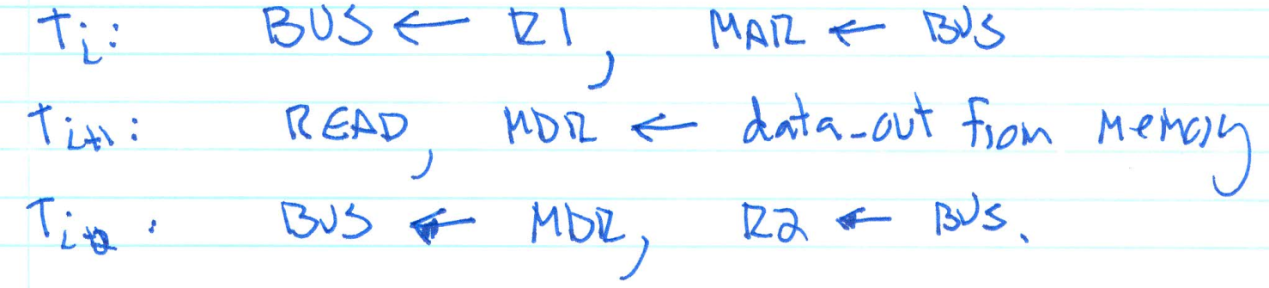 Ti: BUS ← R1, MAR ← BUS
Ti+1: READ, MDR ← data-out from Memory
Ti+2: BUS ← MDR, R2 ← BUS.